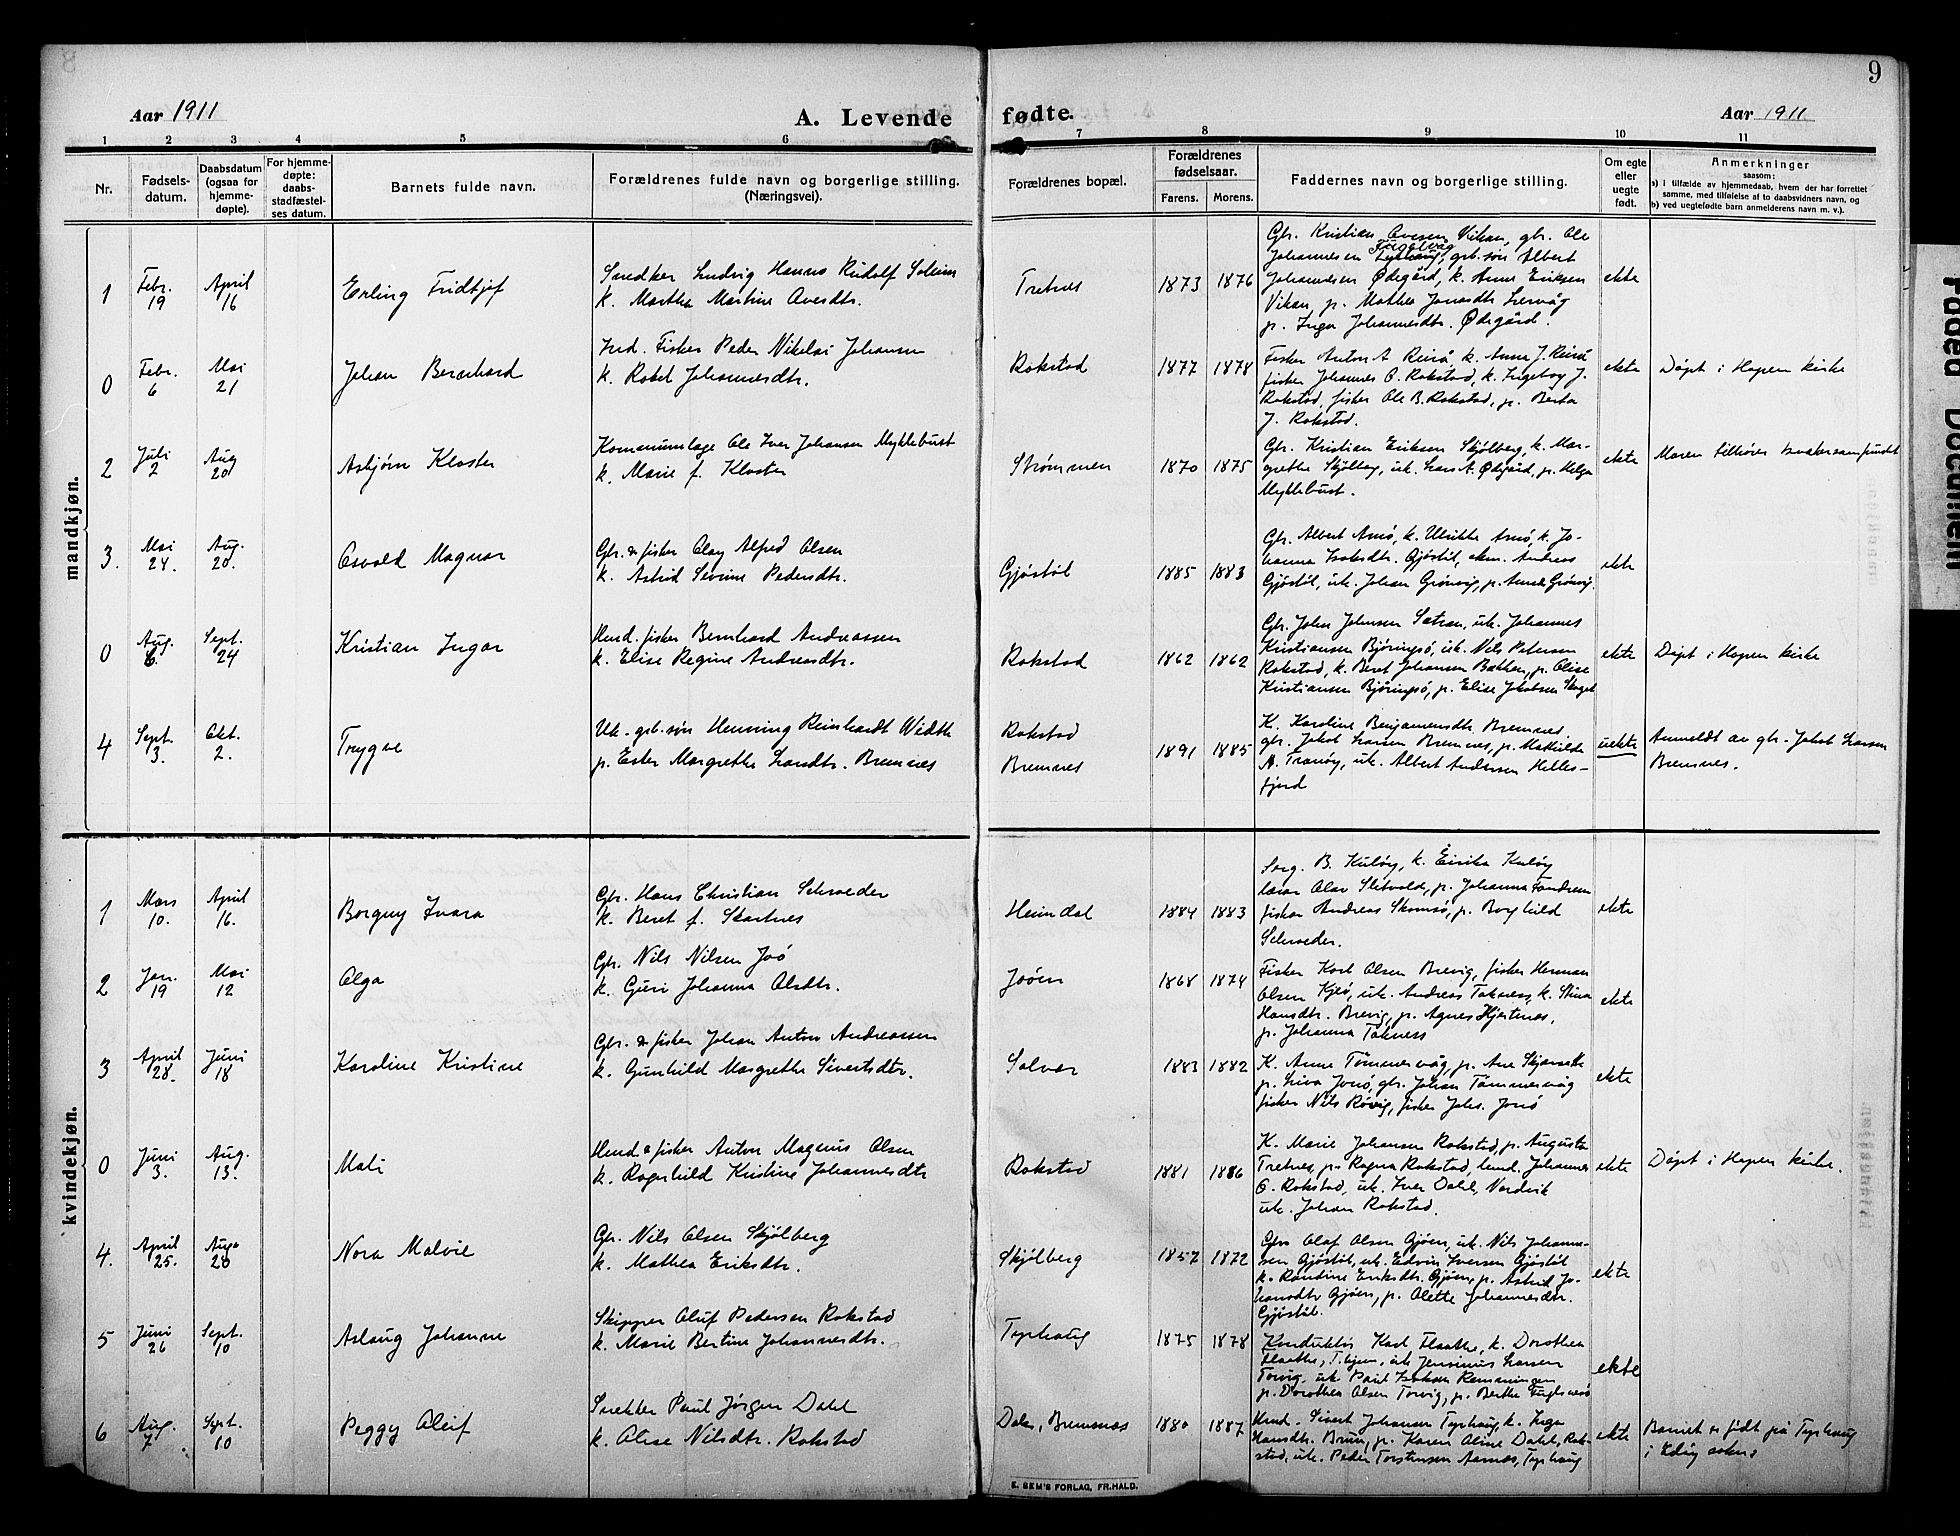 8
9
Aar 1911
A. Levende
fødte.
Aar 1911
1 2 3 4 5 6 7 8 9 10 11
Nr.
Fødsels-
datum.
Daabsdatum
(ogsaa for
hjemme-
døpte).
For hjemme-
døpte:
daabs-
stadfæstel-
ses datum.
Barnets fulde navn.
Forældrenes fulde navn og borgerlige stilling.
(Næringsvei).
Forældrenes bopæl.
Forældrenes
fødselsaar.
Farens. Morens.
Faddernes navn og borgerlige stilling.
Om egte
eller
uegte
født.
Anmerkninger
saasom:
a) i tilfælde av hjemmedaab, hvem der har forrettet
samme, med tilføielse af to daabsvidners navn, og
b) ved uegtefødte barn anmelderens navn m. v.).
mandkjøn.
1
Febr.
19
April
16
Erling Fridtjof
Snedker Ludvig Hanns Rudolf Solum
k. Martha Martine Ovesdtr.
Tretnes
1873 1876
Gbr. Kristian Ovesen Vikan, gbr. Ole
Fugelvåg
Johannesen, gbr.søn Albert
Johannesen Ødegård, k. Anne Eriksen
Vikan, p. Mathea Jonasdtr. Leervåg
p. Inga Johannesdtr. Ødegård.
ekte
0
Febr.
6
Mai
21
Johan Bernhard
Ind. Fisker Peder Nikolai Johansen
k. Rakel Johannesdtr.
Rokstad
1877 1878
Fisker Anton A Reirå, k. Anne J. Reirå
fisker Johannes O. Rokstad, k. Ingeborg J.
Rokstad, fisker Ole B. Rokstad, p. Berta
J. Rokstad.
ekte
Døpt i Hopen kirke
2
Juli
2
Aug
20
Asbjørn Kloster
Kommunelæge Ole Iver Johansen Myklebust
k. Marie f. Kloster
Strømmen
1870 1875
Gbr. Kristian Eriksen Skjølberg, k. Mar-
grethe Skjølberg, uk. Lars A. Ødegård, p. Helga
Myklebust.
ekte
Moren tilhører kvækersamfundet
3.
Mai
24.
Aug.
20.
Osvald Magnar
Gbr. & fisker Olay Alfred Olsen
k. Astrid Sivrine Pedersdtr.
Gjøstøl
1885 1883
Gbr. Albert Arnø, k. Ulrikke Arnø, k. Jo-
hanna Isaksdtr. Gjøstøl, ekm. Andreas
Gjøstøl, uk. Johan Grønvig, p. Anna Grønvig.
ekte
0
Aug.
6.
Sept.
24
Kristian Ingar
Husd. fisker Bernhard Andreassen
k. Elise Regine Andreasdtr.
Rokstad
1862 1862
Gbr. Johan Johnsen Sætran, uk. Johannes
Kristiansen Bjøringsø, uk. Nils Petersen
Rokstad, k. Beret Johansen Bakken, p. Olise
Kristiansen Bjøringsø, p. Elise Jakobsen
ekte
Døpt i Hopen kirke
4
Sept.
3.
Okt.
2.
Trygve
Uk. gb.søn Henning Reinhardt Width
p. Ester Margrethe Larsdtr. Bremnes
Rokstad
Bremnes
1891 1885
K. Karoline Benjaminsdtr. Bremnes,
gbr. Jakob Larsen Bremnes, p. Mathilde
A. Tranøy, uk. Albert Andersen Helles-
fjord
uekte
Anmeldt av gbr. Jakob Larsen
Bremnes.
kvindekjøn.
1
Mars
10.
April
16.
Borguy Ivara
Gbr. Hans Christian Schrøder
k. Beret f. Skartnes
Heimdal
1884 1883
Sorg. B. Kuløy, k. Eirika Kuløy
lærer Olav Sletvold, p. Johanna
fisker Andreas Skomsø, p. Borghild
Schrøder.
ekte
2
Jan.
19
Mai
12
Olga
Gbr. Nils Nilsen Joø
k. Guri Johanna Olsdtr.
Joøen
1868 1874
Fisker Karl Olsen Brevig, fisker Herman
Olsen Kjeø, uk. Andreas Taknes, k. Stina
Hansdtr. Brevig, p. Agnes Hjertnes,
p. Johanna Taknes
ekte
3
April
28.
Juni
18
Karoline Kristine
Gbr. & fisker Johan Anton Andreassen
k. Gunhild Margrethe Sivertsdtr.
Solvær
1883 1882
K. Anne Tømmervåg, p. Ane Skjærseth
p. Livia Jonsø, gbr. Johan Tømmervåg
fisker Nils Røvig, fisker Johs. Jonsø
ekte
0
Juni
3.
Aug.
13.
Mali
Husd. & fisker Anton Magnus Olsen
k. Ragnhild Kristine Johannesdtr
Rokstad
1881 1886
K. Marie Johansen Rokstad, p. Augusta
Tretnes, p. Ragna Rokstad, husd. Johannes
O. Rokstad, uk. Iver Dahl, Nordvik
uk. Johan Rokstad.
ekte
Døpt i Hopen kirke.
4.
April
25.
Aug
20
Nora Malvie
Gbr. Nils Olsen Skjølberg
k. Mathea Eriksdtr.
Skjølberg
1857 1872
Gbr Olaf Olsen Gjøen, uk. Nils Johanne-
sen Gjøstøl, uk. Edvin Iversen Gjøstøl
k. Randine Eriksdtr. Gjøen, p. Astrid Jo-
hansdtr Gjøen, p. Olette Johannesdtr.
Gjøstøl.
ekte
5
Juni
26
Sept.
10
Aslaug Johanne
Skipper Oluf Pedersen Rokstad
k. Marie Bertine Johannesdtr.
Tyrhaug
1875 1878
Konduktør Karl Flaathe, k. Dorothea
Flaathe, T.hjem, uk Jensinus Larsen
Torvig, uk. Paul Isaksen Ramningen
p. Dorothea Olsen Torvig, p. Berthe Fuglesnes
ekte
6
Aug.
7.
Sept.
10
Peggy Oleif
Snekker Paul Jørgen Dahl
k. Olise Nilsdtr. Rokstad
Dale, Bremnes
1880 1887
Husd. Sivert Johansen Tyrhaug, k. Inga
Hansdtr. Bruun, p. Karen Oline Dahl, Rok-
stad, uk. Peder Torstensen Aarnes, Tyrhaug
ekte
Barnet er født på Tyrhaug
i Edøy sokn.
E. SEM'S FORLAG, FR.HALD.